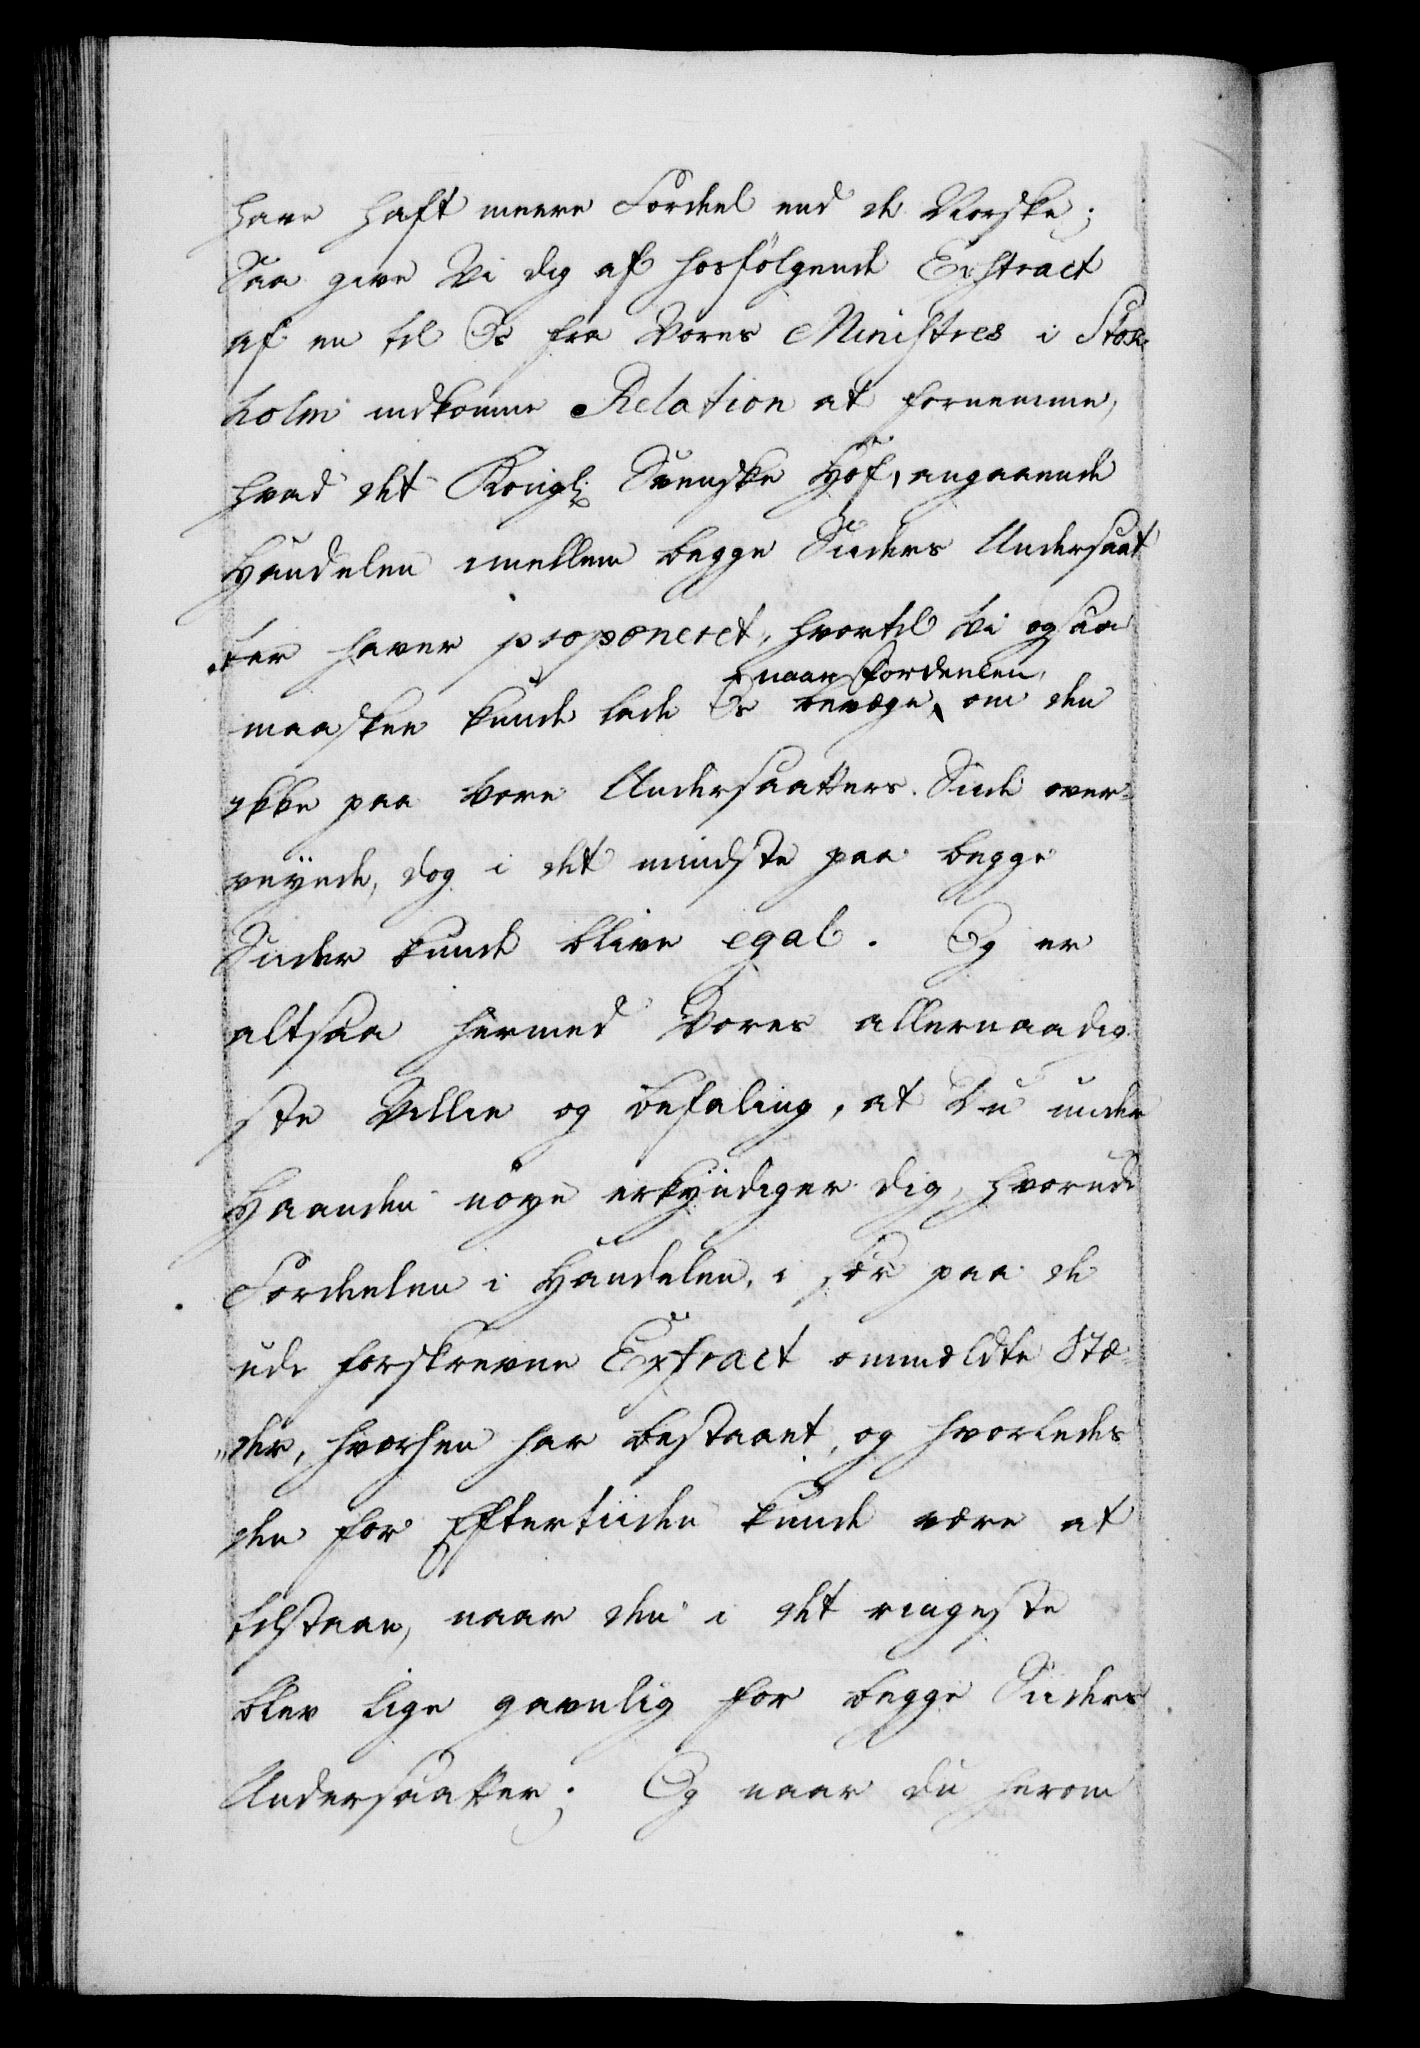 have haft meere Fordeel end de Norske;
Saa give Vi dig af hosfölgende Extract
af en til Os fra Vores Ministres i Stok-
holm indkomne Relation at fornemme,
hvad det Kongl: Svenske Hof, angaaende
Handelen imellem begge Siiders Undersaat
ter haver proponeret, hvortil Vi ogsaa
naar Fordeelen,
maaskee kunde lade Os bevæge, om den
ikke paa vore Undersaatters Siide over-
veÿede, dog i det mindste paa begge
Siider kunde blive egal. Og er
altsaa hermed Vores allernaadig-
ste Villie og Befaling, at Du under
Haanden nöye erkÿndiger dig, hvorudi
Fordeelen i Handelen, i sær paa de
udi forskrevne Extract ommeldte Stæ-
der, hvorhen har bestaaet, og hvorledes
den for Eftertiiden kunde være at
tilstaae, naar den i det ringeste
blev lige gavnlig for begge Siiders
Undersaatter; Og naar du herom